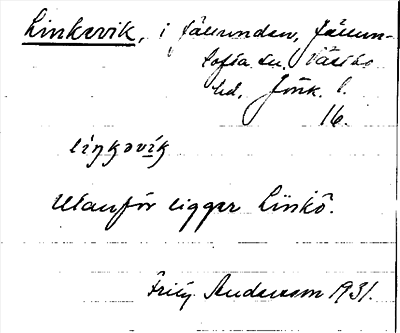 Linksvik, i Färunden, Färun-
tofta sn. Västbo
hd. Jönk. l.
16.
liŋkəvik
Utanför ligger Linkö.
Fritz Andersson 1931.